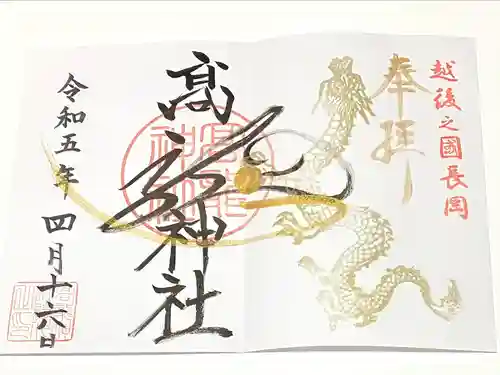 越後之國長岡
奉拝
高龍神社
令和五年
四月十六日